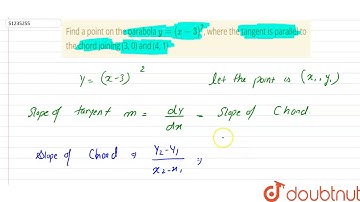 51235255
Find a point on the parabola y = (x − 3)², where the tangent is parallel to
the chord joining (3, 0) and (4, 1).
y = (x-3)² let the point is (x₁, y₁)
Slope of tangent m = dy/dx = Slope of Chord.
Slope of Chord ⇒ y₂-y₁/x₂-x₁ ,
doubtnut